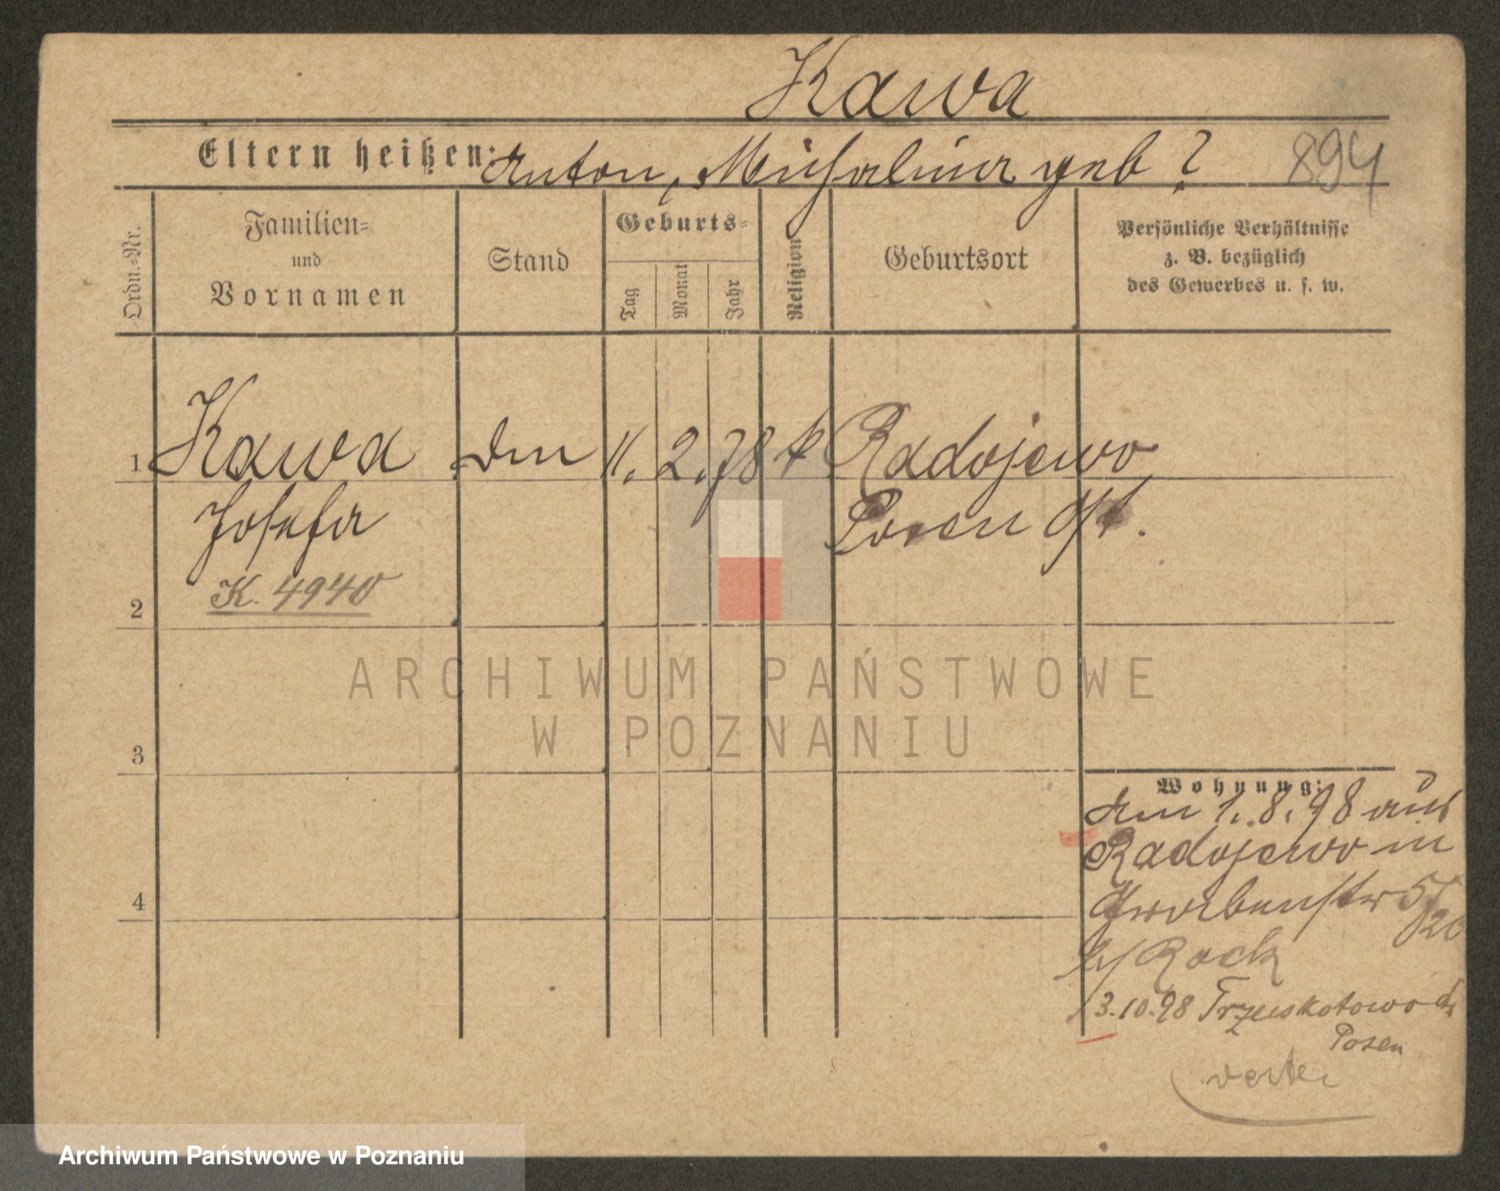 Kawa
Eltern heißen: Anton, Michalina geb ?
894
Ordn.-Nr.
Familien-
und
Vornamen
Stand
Geburts-
Tag
Monat
Jahr
Religion
Geburtsort
Persönliche Verhältnisse
z. B. bezüglich
des Gewerbes u. s. w.
1 Kawa 11. 2. 78 k Radojewo
Josefa Posen
K. 4940
2
ARCHIWUM PAŃSTWOWE
W POZNANIU
3
Wohnung:
1. 8. 98 aus
Radojewo in
57
20
b/ Rock
3.10.98
Posen
4
Archiwum Państwowe w Poznaniu